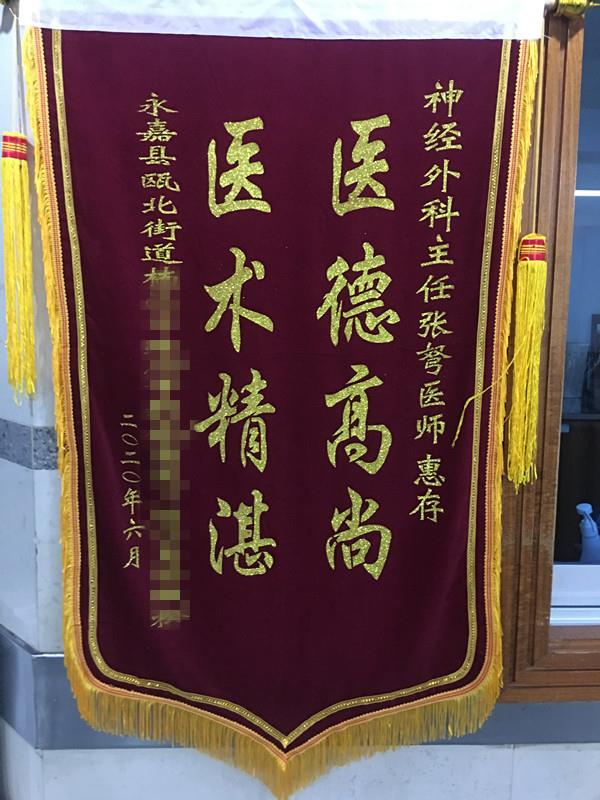 神经外科主任张弩医师 惠存
医德高尚
医术精湛
永嘉县瓯北街道
二〇二〇年六月